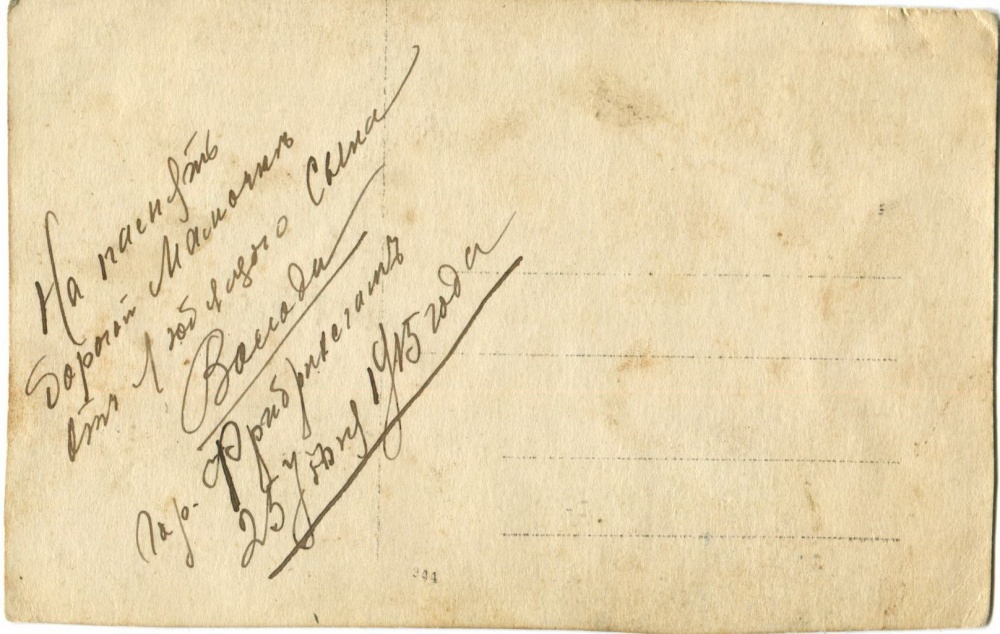 На память
дорогой Мамочкѣ
отъ любящаго Сына
Володи
Гор. Фридрихсгамъ
25 Іюня 1915 года
344